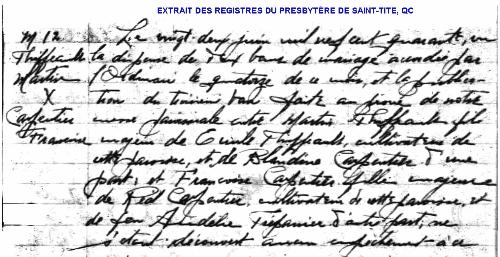 EXTRAIT DES REGISTRES DU PRESBYTÈRE DE SAINT-TITE, QC
M 12
Thiffault
Martin
X
Carpentier
Françoise
Le vingt-deux juin mil neuf cent quarante un
la dispense de deux bans de mariage accordée par
l'Ordinaire le quatorze de ce mois, et la publica-
tion du troisième ban faite au prône de notre
messe paroissiale entre Martin Thiffault fils
majeur de Emile Thiffault, cultivateur de
cette paroisse, et de Blandine Carpentier d'une
part; et Françoise Carpentier fille majeure
de Réal Carpentier, cultivateur de cette paroisse, et
de feu Trépanier d'autre part, ne
s'étant découvert aucun empêchement à ce